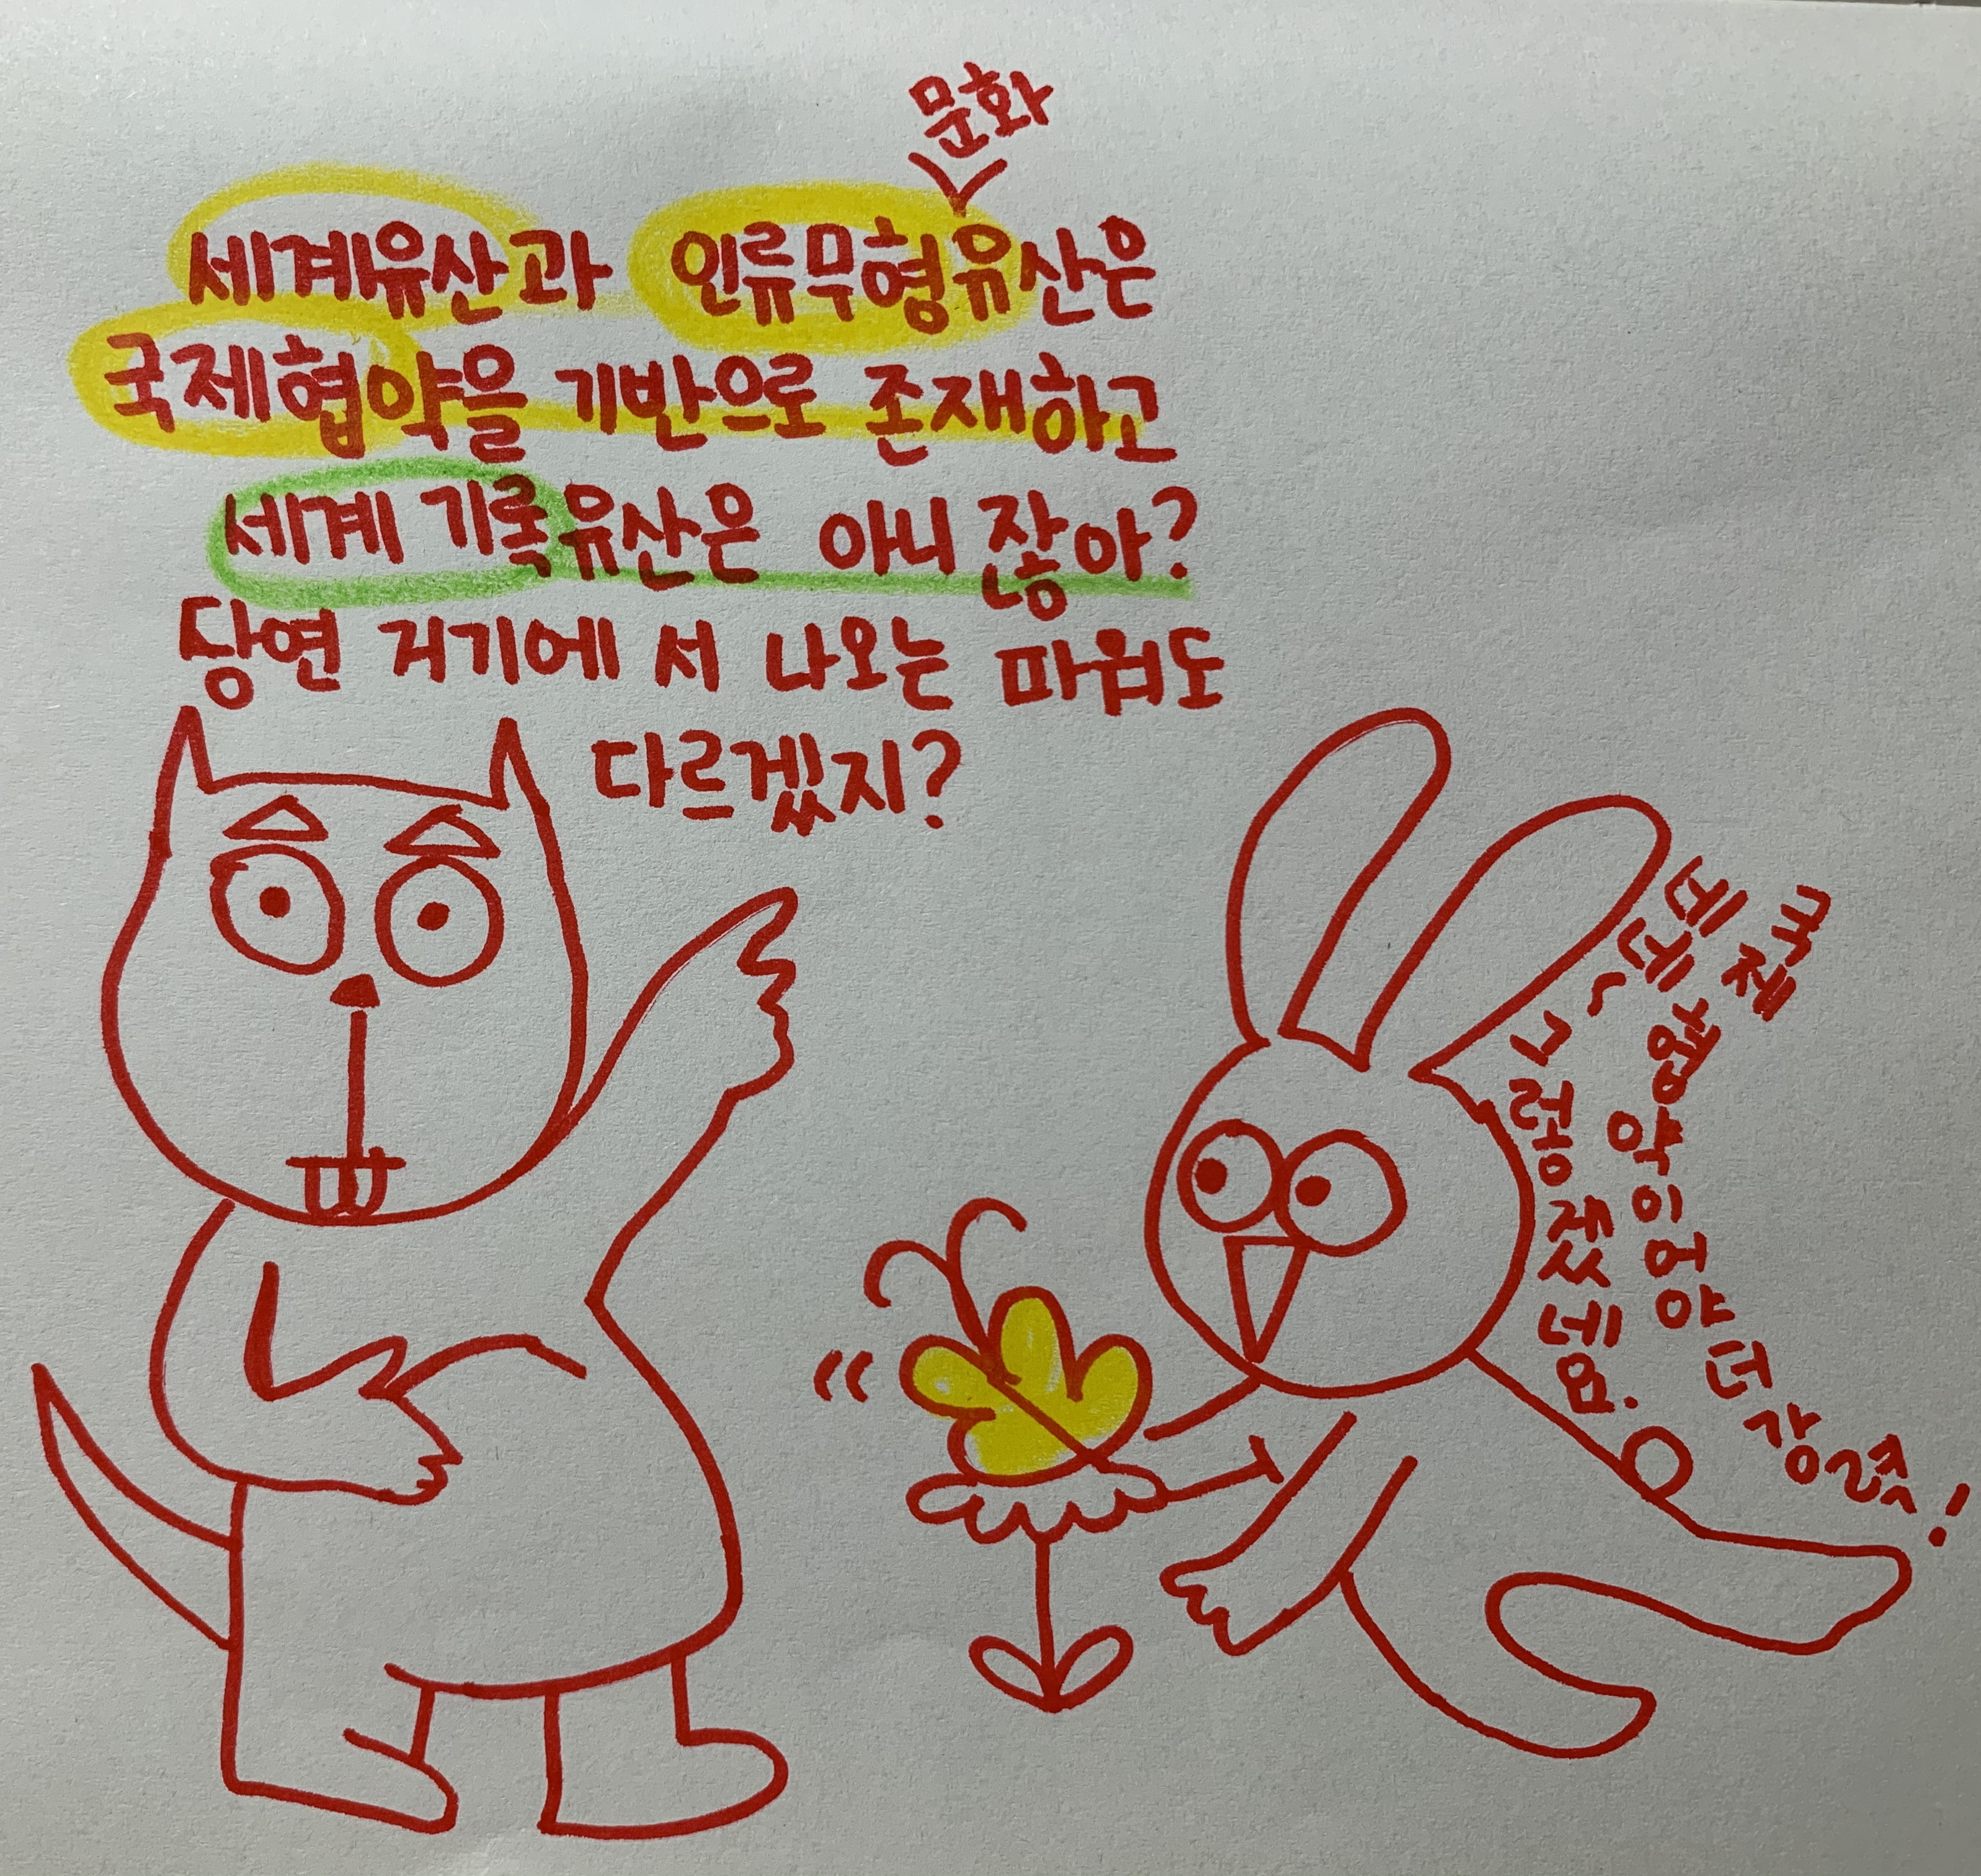 문화
세계유산과 인류무형유산은
국제협약을 기반으로 존재하고
세계 기록유산은 아니잖아?
당연 거기에서 나오는 파워도
다르겠지?
네네~ 그렇겠네요.
국제협약이어야 더 강하죠!